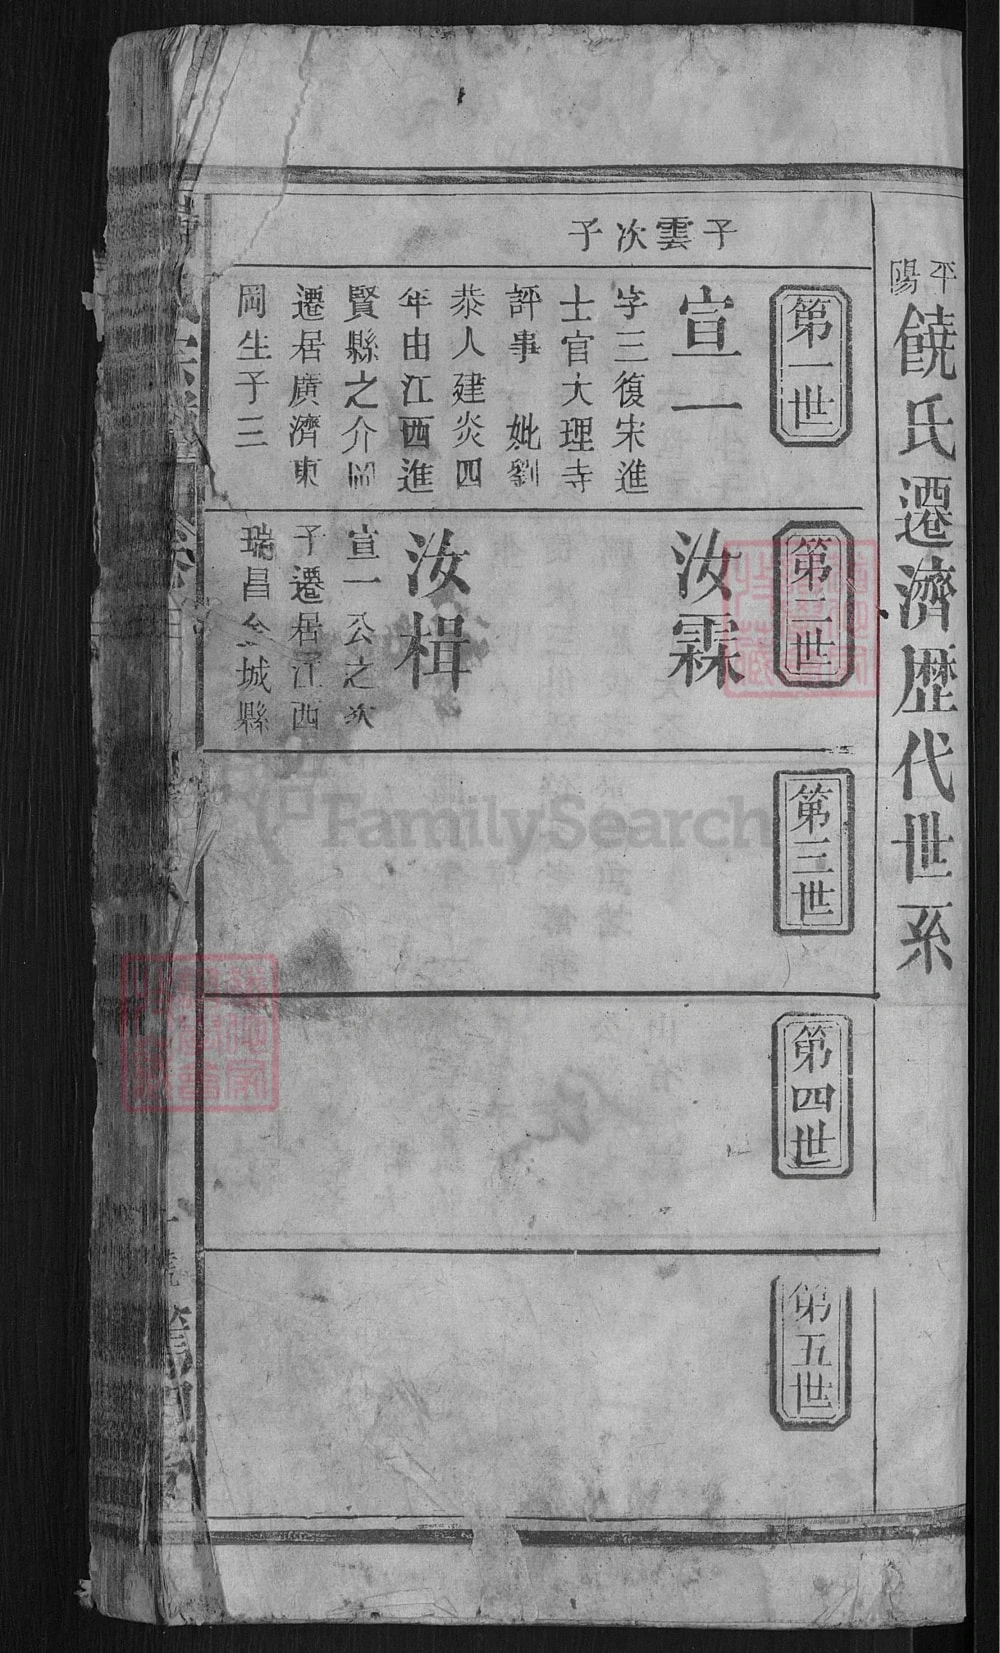 平陽
饒氏遷濟歷代世系
子雲次子
第一世
宣一
字三復宋進
士官大理寺
評事 妣劉
恭人建炎四
年由江西進
賢縣之介岡
遷居廣濟東
岡生子三
第二世
汝霖
汝楫
宣一公之次
子遷居江西
瑞昌金城縣
第三世
第四世
第五世
FamilySearch